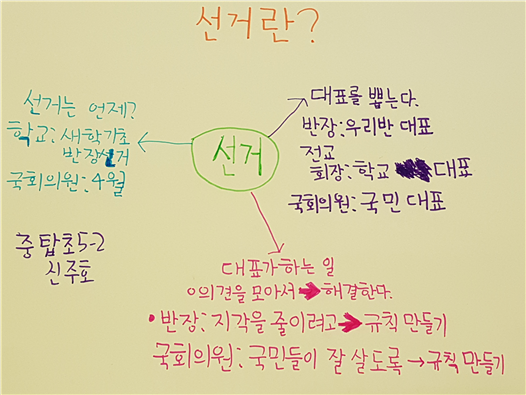 선거란?
선거는 언제?
학교: 새학기초
반장선거
국회의원: 4월
중탑초5-2
신주호
선거
대표를 뽑는다.
반장: 우리반 대표
전교
회장: 학교 대표
국회의원: 국민 대표
대표가하는 일
의견을 모아서 → 해결한다.
• 반장: 지각을 줄이려고 → 규칙 만들기
국회의원: 국민들이 잘 살도록 → 규칙 만들기